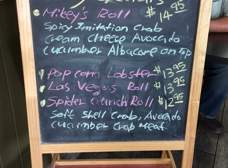 Mikey's Roll $14.95
Spicy Imitation Crab
cream cheese Avocado
cucumber Albacore on top
Popcorn Lobster $13.95
Las Vegas Roll $13.95
Spider Crunch Roll $12.95
Soft Shell Crab, Avocado
cucumber crab meat